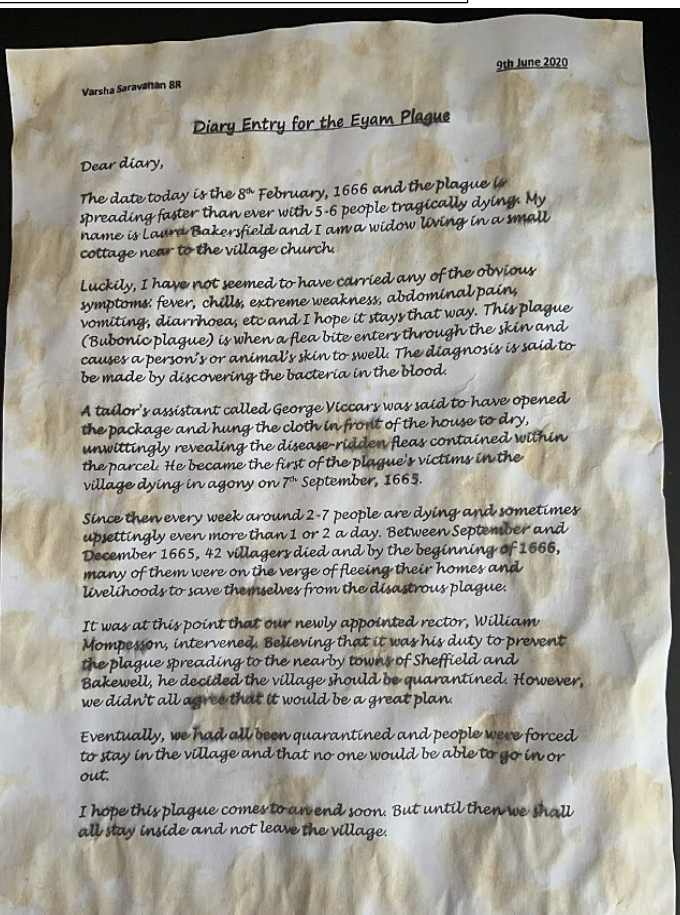 9th June 2020
Varsha Saravanan 8R
Diary Entry for the Eyam Plague
Dear diary,
The date today is the 8th February, 1666 and the plague is
spreading faster than ever with 5-6 people tragically dying. My
name is Laura Bakersfield and I am a widow living in a small
cottage near to the village church.
Luckily, I have not seemed to have carried any of the obvious
symptoms: fever, chills, extreme weakness, abdominal pain,
vomiting, diarrhoea, etc and I hope it stays that way. This plague
(Bubonic plague) is when a flea bite enters through the skin and
causes a person's or animal's skin to swell. The diagnosis is said to
be made by discovering the bacteria in the blood.
A tailor's assistant called George Viccars was said to have opened
the package and hung the cloth in front of the house to dry,
unwittingly revealing the disease-ridden fleas contained within
the parcel. He became the first of the plague's victims in the
village dying in agony on 7th September, 1665.
Since then every week around 2-7 people are dying and sometimes
upsettingly even more than 1 or 2 a day. Between September and
December 1665, 42 villagers died and by the beginning of 1666,
many of them were on the verge of fleeing their homes and
livelihoods to save themselves from the disastrous plague.
It was at this point that our newly appointed rector, William
Mompesson, intervened. Believing that it was his duty to prevent
the plague spreading to the nearby towns of Sheffield and
Bakewell, he decided the village should be quarantined. However,
we didn't all agree that it would be a great plan.
Eventually, we had all been quarantined and people were forced
to stay in the village and that no one would be able to go in or
out.
I hope this plague comes to an end soon. But until then we shall
all stay inside and not leave the village.